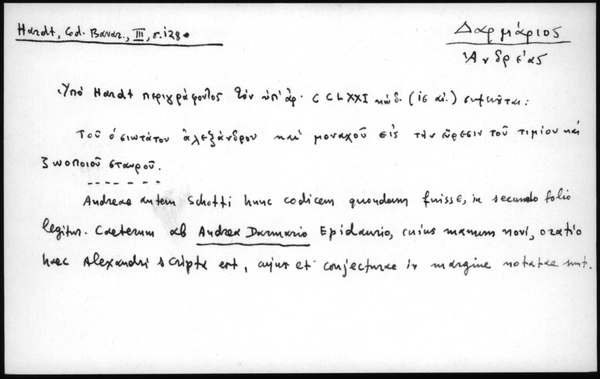 Hardt, Cod. Bavar., III, σ. 128.
Δαρμάριος
Ἀνδρέας
Ὑπὸ Hardt περιγράφοντος τὸν ὑπ' ἀρ. CCLXXI κώδ. (ις αἰ.) σημειοῦται:
Τοῦ ὁσιωτάτου ἀλεξάνδρου καὶ μοναχοῦ εἰς τὴν εὕρεσιν τοῦ τιμίου καὶ
ζωοποιοῦ σταυροῦ.
Andreae autem Schotti hunc codicem quondam fuisse, in secundo folio
legitur. Caeterum ab Andrea Darmario Epidaurio, cuius manum novi, oratio
haec Alexandri scripta est, cujus et conjecturae in margine notatae sunt.